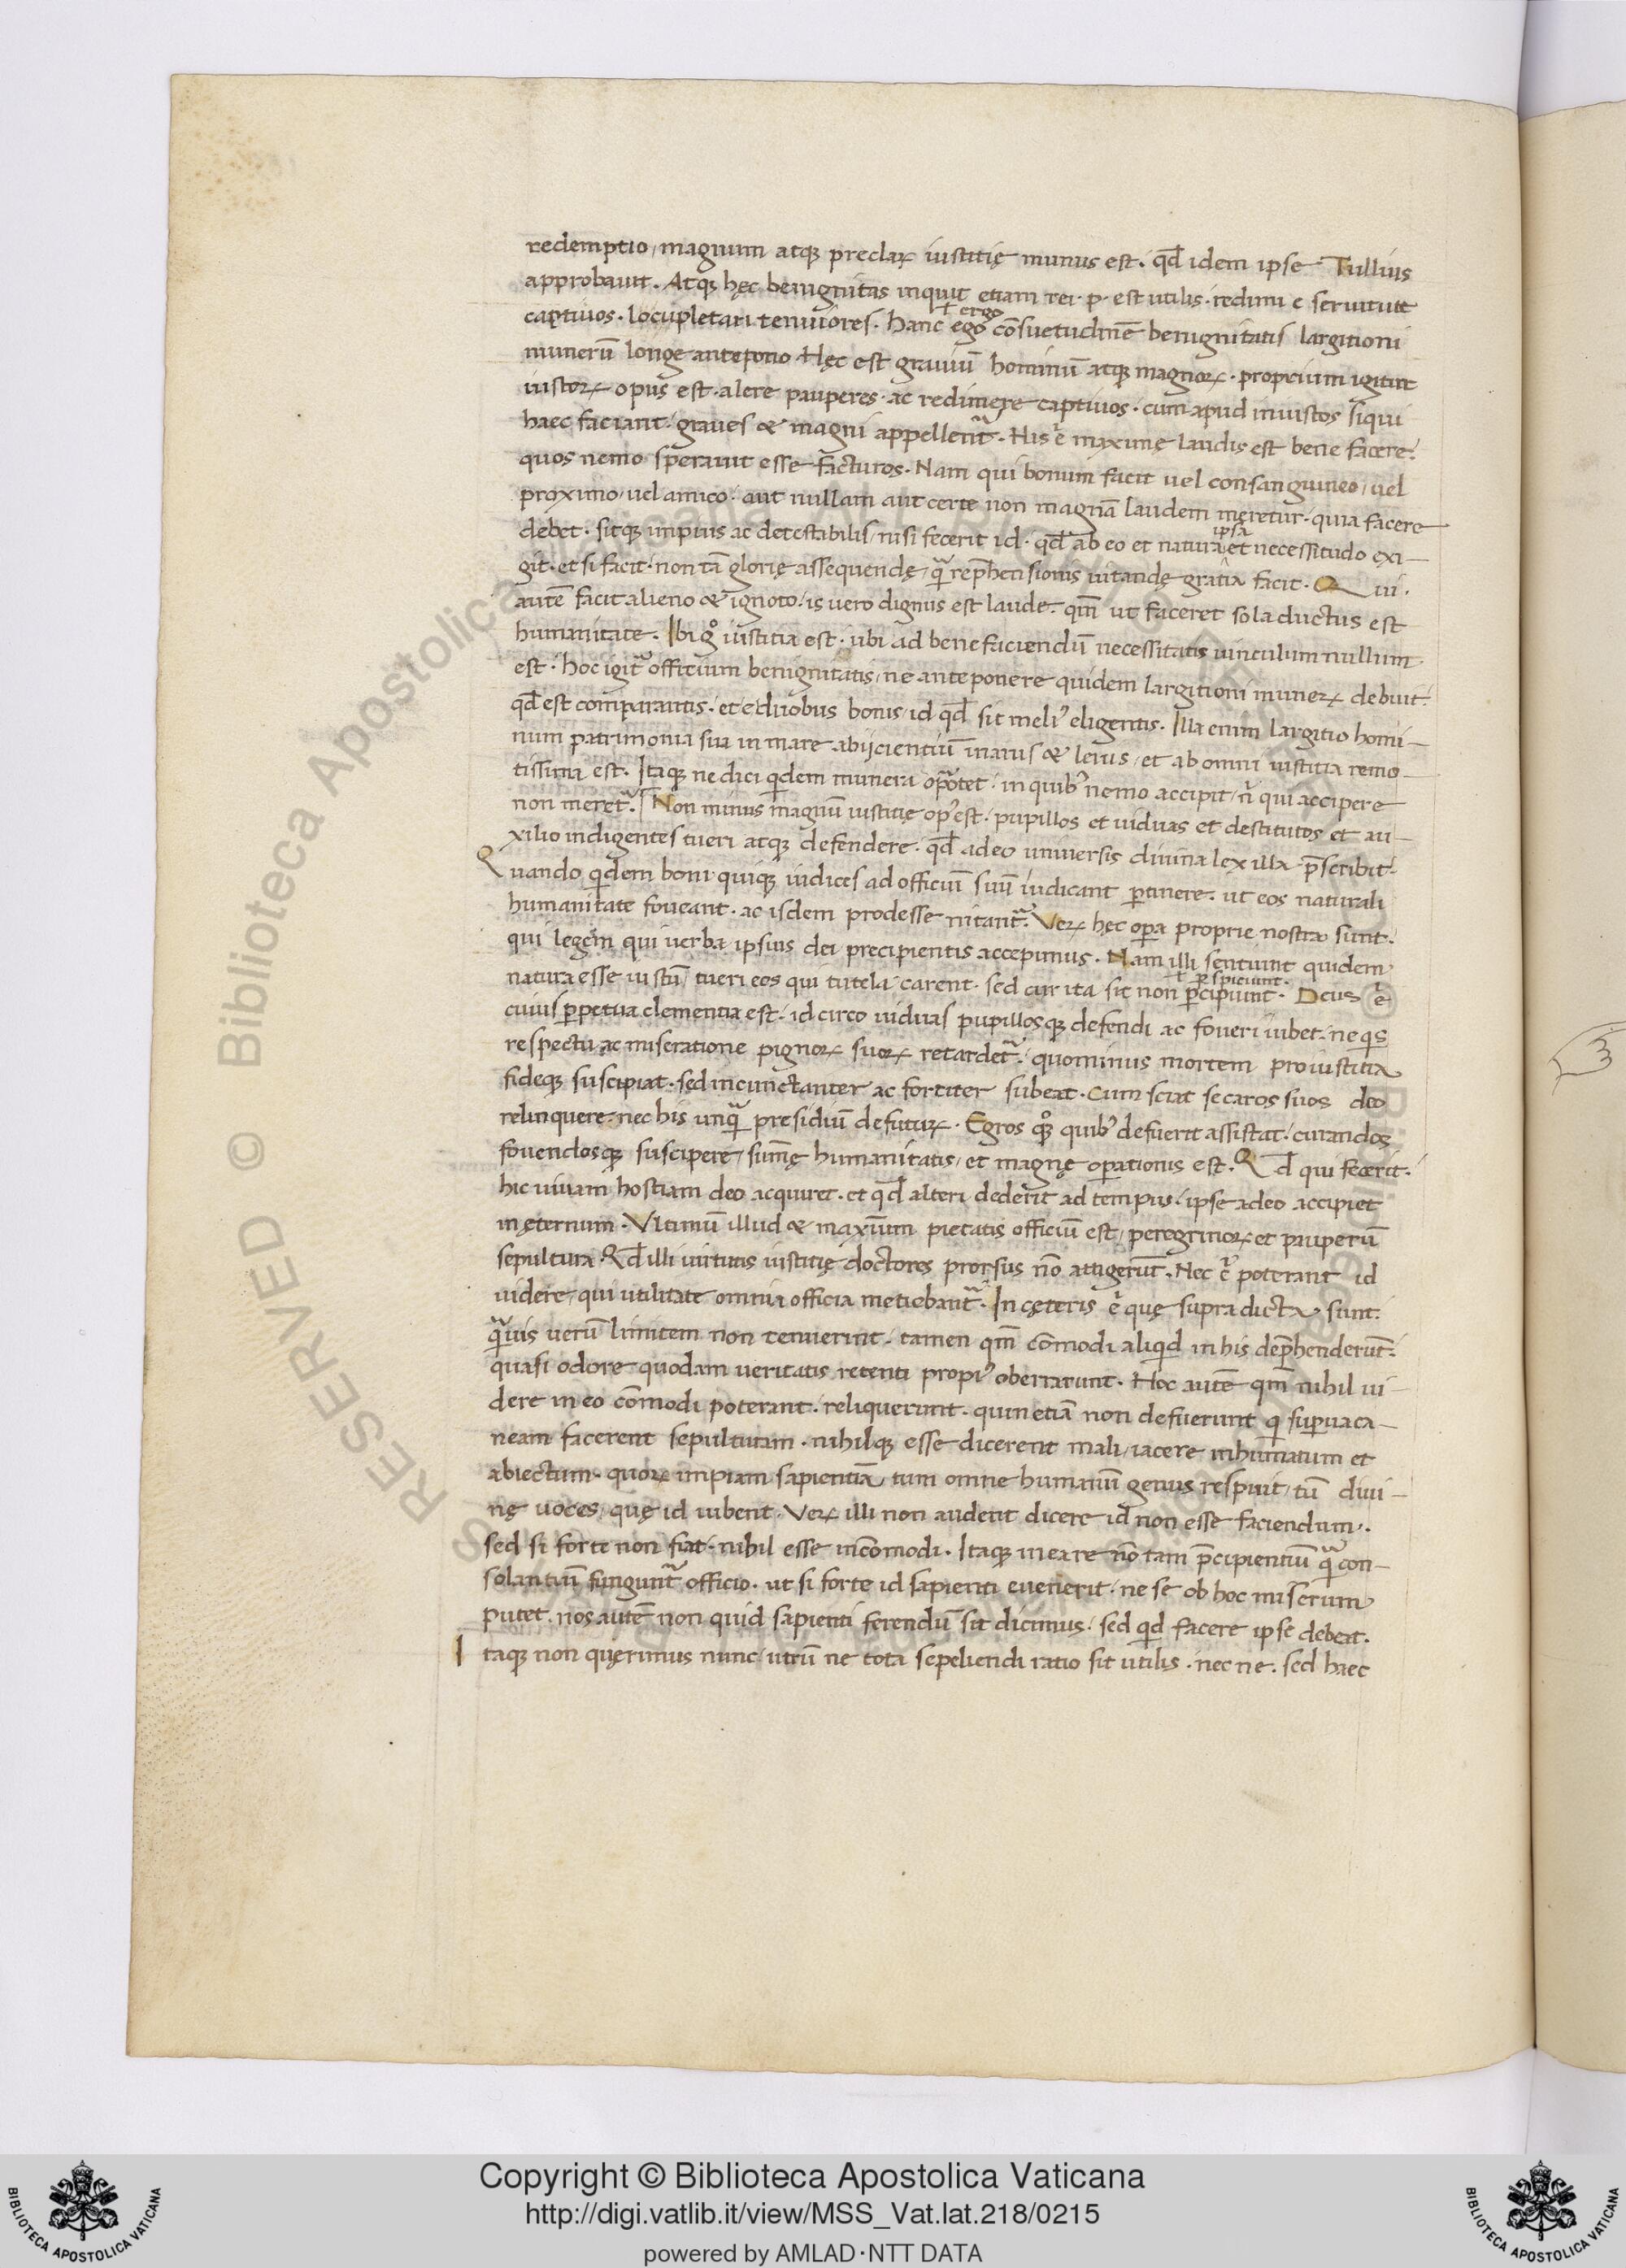 redemptio, magnum atqꝫ preclaꝝ iustitię munus est. qđ idem ipse Tullius
approbauit. Atqꝫ hęc benignitas inquit etiam rei. p. est utilis. redimi e seruitute
ergo
captiuos. locupletari tenuiores. hanc ego cōsuetudinē benignitatis largitioni
munerū longe antepono. Hęc est grauiū hominū atqꝫ magnoꝝ. proprium igitur
iustoꝝ opus est. alere pauperes. ac redimere captiuos. cum apud iniustos siqui
haec faciant. graues & magni appellent᷑. His .n. maxime laudis est bene facere.
quos nemo sperauit esse facturos. Nam qui bonum facit uel consanguineo, uel
proximo, uel amico. aut nullam aut certe non magnā laudem meretur. quia facere
ipsa
debet. sitqꝫ impius ac detestabilis, nisi fecerit id. qđ ab eo et natura et necessitudo exi-
git. et si facit. non tā glorię assequendę, quā rep̄hensionis uitandę gratia facit. Qui.
autē facit alieno & ignoto, is uero dignus est laude. qm̄ ut faceret sola ductus est
humanitate. Ibi gͦ iustitia est. ubi ad bene faciendū necessitatis uinculum nullum
est. hoc igit᷑ officium benignitatis, ne anteponere quidem largitioni muneꝝ debuit.
qđ est comparantis. et e duobus bonis, id qđ sit meli᾽ eligentis. Illa enim largitio homi-
num patrimonia sua in mare abijcientiū inanis & leuis, et ab omni iustitia remo-
tissima est. Itaqꝫ ne dici qͥdem munera oportet. in quib᾽ nemo accipit, n̄ qui accipere
non meret᷑. Non minus magnū iustitię op᾽ est. pupillos et uiduas et destitutos et au-
xilio indigentes tueri atqꝫ defendere. qđ adeo uniuersis diuina lex illa p̄scribit.
Quando qͥdem boni quiqꝫ iudices ad officiū suū iudicant ꝑtinere. ut eos naturali
humanitate foueant. ac isdem prodesse nitant᷑. Veꝝ hęc oꝑa proprie nostra sunt.
qui legem qui uerba ipsius dei precipientis accepimus. Nam illi sentiunt quidem
ꝑspiciunt.
natura esse iustū tueri eos qui tutela carent. sed cur ita sit non ꝑcipiunt. Deus .n.
cuius ꝑpetua clementia est. id circo uiduas pupillosqꝫ defendi ac foueri iubet. ne qͥs
respectu ac miseratione pignoꝝ suoꝝ retardet᷑. quominus mortem pro iustitia
fideqꝫ suscipiat. sed incunctanter ac fortiter subeat. Cum sciat se caros suos deo
relinquere. nec his unqͣ presidiū defutuꝝ. Egros qͦqꝫ quib᾽ defuerit assistat. curandos
fouendosqꝫ suscipere, sum̄ę humanitatis, et magnę oꝑationis est. Qđ qui fecerit.
hic uiuam hostiam deo acquiret. et qđ alteri dederit ad tempus. ipse a deo accipiet
in ęternum. Vltimū illud & maximum pietatis officiū est, peregrinoꝝ et pauperū
sepultura. Qđ illi uirtutis iustitię doctores prorsus nō attigerūt. Nec .n. poterant id
uidere, qui utilitate omnia officia metiebant᷑. In cęteris .n. quę supra dicta sunt.
qͣuis uerū limitem non tenuerint. tamen qm̄ cōmodi aliqͥd in his dep̄henderūt.
quasi odore quodam ueritatis retenti propi᾽ oberrarunt. Hoc autē qm̄ nihil ui-
dere in eo cōmodi poterant. reliquerunt. quin etiā non defuerunt qͥ suꝑuaca-
neam facerent sepulturam. nihilqꝫ esse dicerent mali, iacere inhumatum et
abiectum. quoꝝ impiam sapientiā, tum omne humanū genus respuit, tū diui-
nę uoces, quę id iubent. Veꝝ illi non audent dicere id non esse faciendum.
sed si forte non fiat. nihil esse incōmodi. Itaqꝫ in ea re nō tam p̄cipientiū qͣ con-
solantiū fungunt᷑ officio. ut si forte id sapienti euenerit. ne se ob hoc miserum
putet. nos autē non quid sapienti ferendū sit dicimus. sed qͥd facere ipse debeat.
Itaqꝫ non quęrimus nunc, utrū ne tota sepeliendi ratio sit utilis. nec ne. sed haec
RESERVED © Biblioteca Apostolica Vaticana
Copyright © Biblioteca Apostolica Vaticana
http://digi.vatlib.it/view/MSS_Vat.lat.218/0215
powered by AMLAD·NTT DATA
BIBLIOTECA APOSTOLICA VATICANA
BIBLIOTECA APOSTOLICA VATICANA